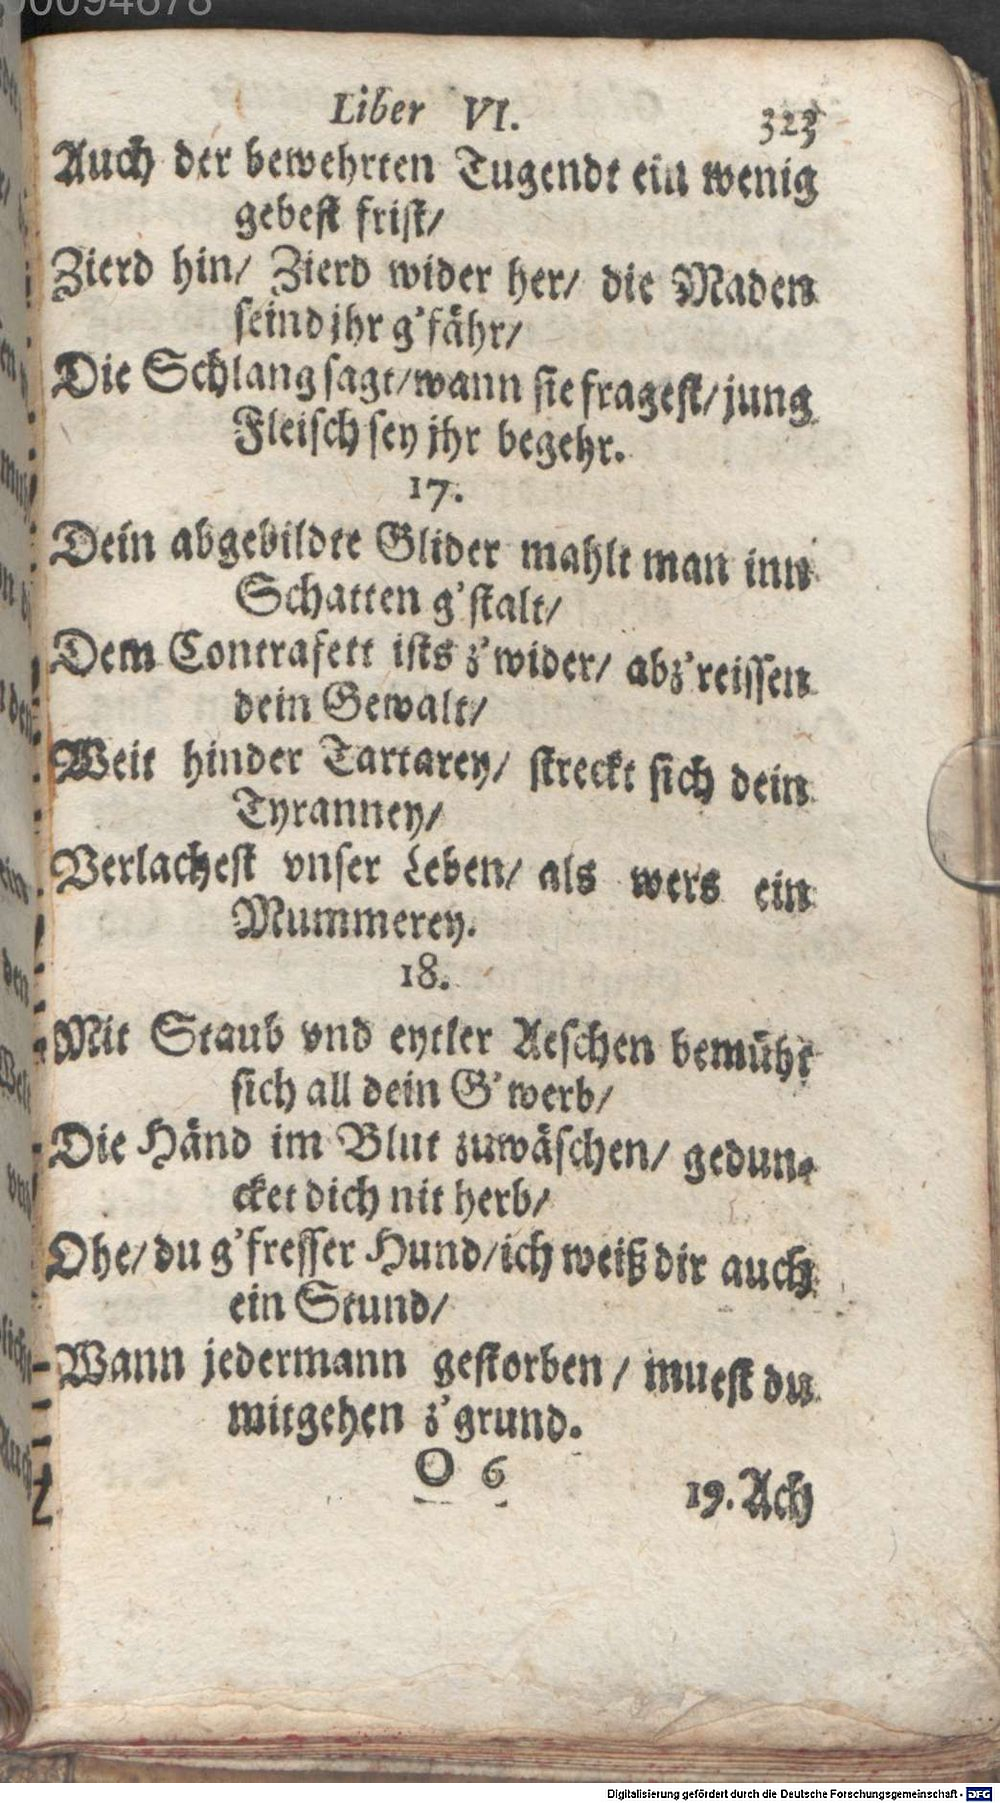 00094678
Liber VI. 323
Auch der bewehrten Tugendt ein wenig
gebest frist/
Zierd hin/ Zierd wider her/ die Maden
seind jhr g'fähr/
Die Schlang sagt/wann sie fragest/jung
Fleisch sey jhr begehr.
17.
Dein abgebildte Glider mahlt man inn
Schatten g'stalt/
Dem Contrafett ists z'wider/ abz'reissen
dein Gewalt/
Weit hinder Tartarey/ streckt sich dein
Tyranney/
Verlachest vnser Leben/ als wers ein
Mummerey.
18.
Mit Staub vnd eytler Aeschen bemüht
sich all dein G'werb/
Die Händ im Blut zuwäschen/ gedun-
cket dich nit herb/
Ohe/du g'fresser Hund/ich weiß dir auch
ein Stund/
Wann jedermann gestorben / muest du
mitgehen z'grund.
O 6
19. Ach
Digitalisierung gefördert durch die Deutsche Forschungsgemeinschaft - DFG